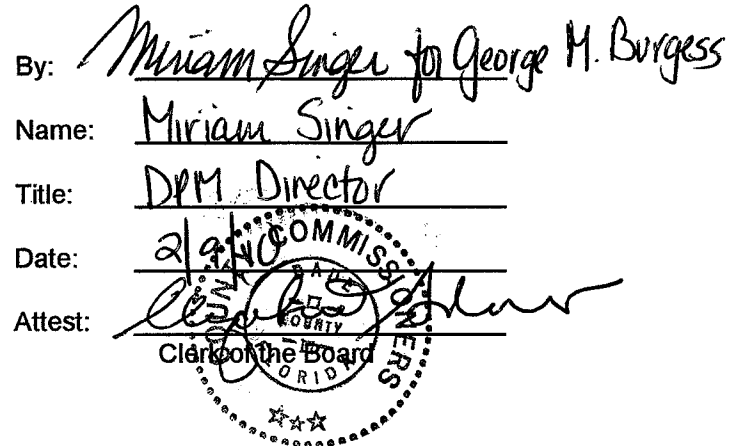 By: Miriam Singer for George M. Burgess
Name: Miriam Singer
Title: DPM Director
Date: 2/9/10
Attest:
Clerk of the Board
COUNTY COMMISSIONERS
DADE
COUNTY
FLORIDA